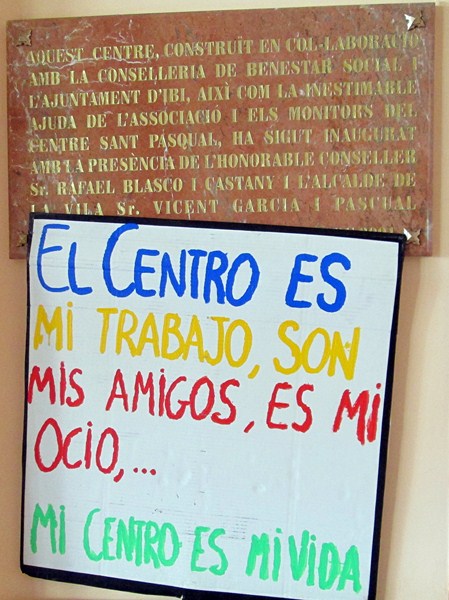 AQUEST CENTRE, CONSTRUIT EN COL·LABORACIÓ
AMB LA CONSELLERIA DE BENESTAR SOCIAL I
L'AJUNTAMENT D'IBI, AIXÍ COM LA INESTIMABLE
AJUDA DE L'ASSOCIACIÓ I ELS MONITORS DEL
CENTRE SANT PASQUAL, HA SIGUT INAUGURAT
AMB LA PRESÈNCIA DE L'HONORABLE CONSELLER
Sr. RAFAEL BLASCO I CASTANY I L'ALCALDE DE
LA VILA Sr. VICENT GARCIA I PASCUAL
EL CENTRO ES
MI TRABAJO, SON
MIS AMIGOS, ES MI
OCIO,...
MI CENTRO ES MI VIDA